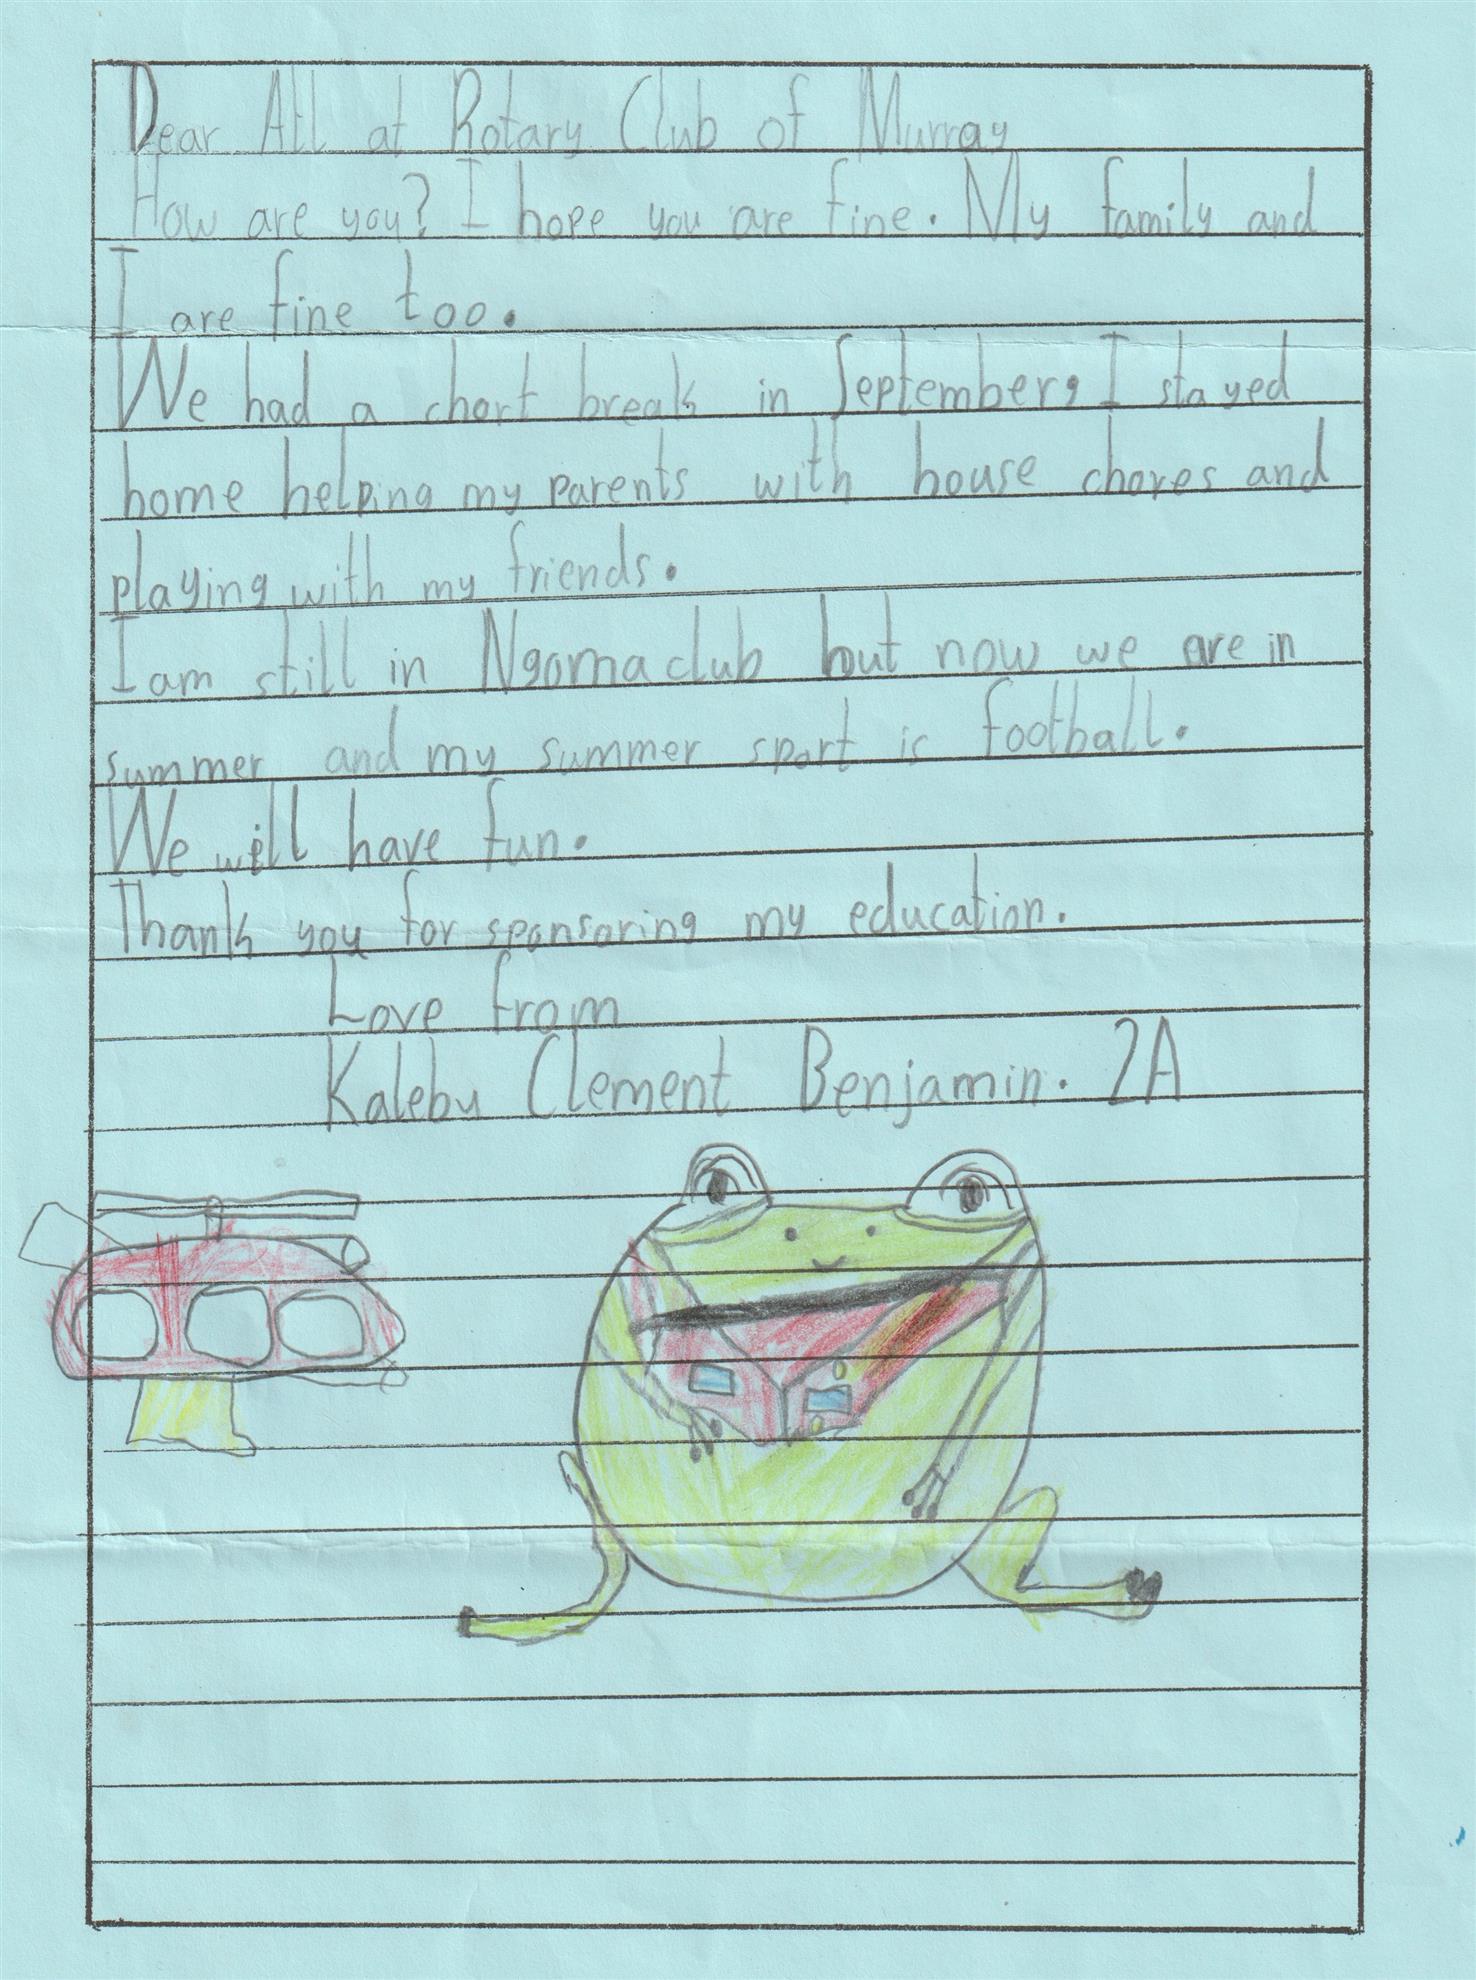 Dear All at Rotary Club of Murray
How are you? I hope you are fine. My family and
I are fine too.
We had a chort break in September, I stayed
home helping my parents with house chores and
playing with my friends.
I am still in Ngoma club but now we are in
summer and my summer sport is football.
We will have fun.
Thank you for sponsoring my education.
Love from
Kalebu Clement Benjamin. 2A